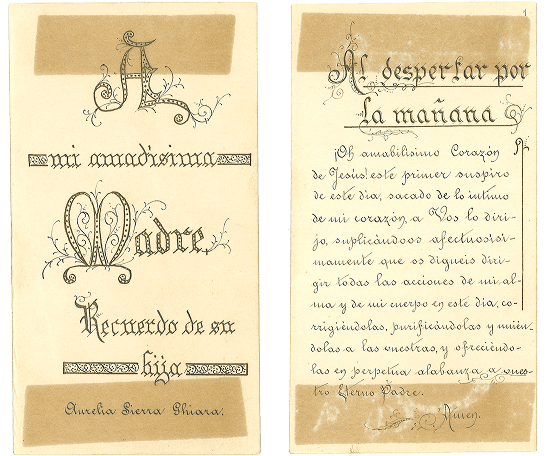 A
mi amadisima
Madre,
Recuerdo de su
hija
Aurelia Sierra Ghiara.
1
Al despertar por
la mañana
¡Oh amabilisimo Corazón
de Jesús! este primer suspiro
de este dia, sacado de lo intimo
de mi corazón, a Vos lo diri-
jo, suplicándoos afectuosisi-
mamente que os digneis diri-
gir todas las acciones de mi al-
ma y de mi cuerpo en este dia, co-
rrigiéndolas, purificándolas y unién-
dolas a las vuestras, y ofreciéndo-
las en perpetua alabanza a vues-
tro Eterno Padre.
Amen.